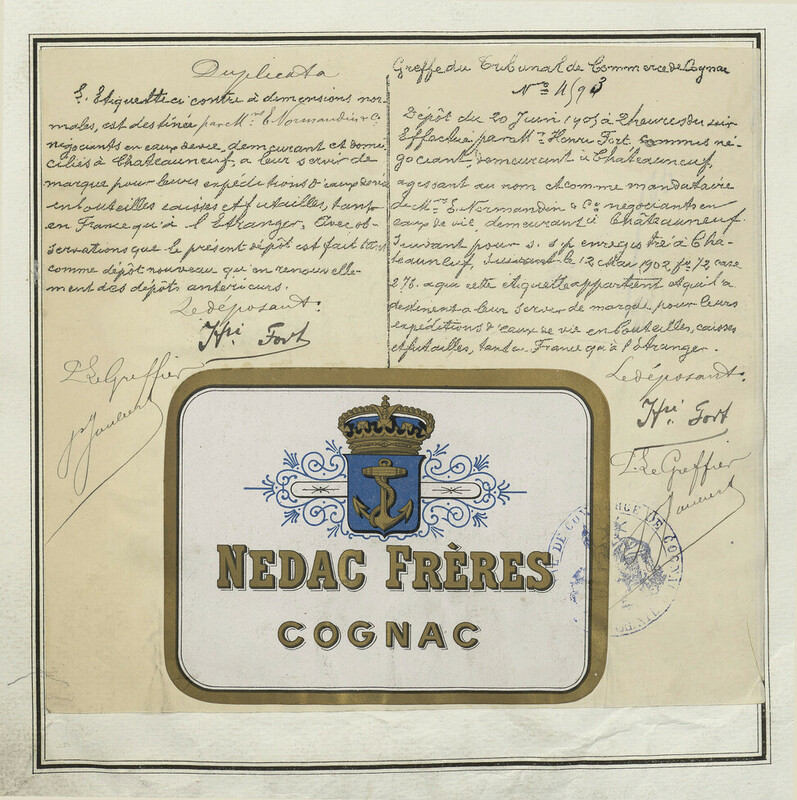 Duplicata
L'Etiquette ci contre à dimensions nor-
males, est destinée par Mrs E. Normandin & Co
négociants en eaux de vie, demeurant et domi-
ciliés à Chateauneuf, a leur servir de
marque pour leurs expéditions d'eaux de vie
en bouteilles caisses et futailles, tant
en France qu'à l'Etranger. Avec ob-
servations que le présent dépôt est fait
comme dépôt nouveau qu'en renouvelle-
ment des dépôts antérieurs.
Le déposant:
Hri Fort
P. Le Greffier
Greffe du Tribunal de Commerce de Cognac
No 11593
Dépôt du 20 Juin 1905 à 2 heures du soir
Effectué par Mr Henri Fort, commis né-
gociant, demeurant à Châteauneuf,
agissant au nom et comme mandataire
de Mrs E. Normandin & Co négociants en
eaux de vie demeurant à Châteauneuf.
Suivant pouvoir s. s. p enregistré à Cha-
teauneuf, le 12 Mai 1902 fo 72 case
276. a qui cette étiquette appartient et qui la
destinent a leur servir de marque pour leurs
expéditions d'eaux de vie en bouteilles, caisses
et futailles, tant en France qu'à l'étranger.
Le déposant:
Hri Fort
P. Le Greffier
NEDAC FRÈRES
COGNAC